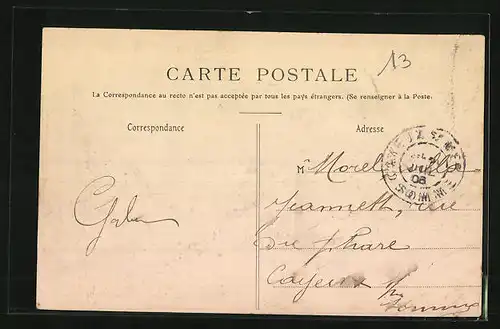 13
CARTE POSTALE
La Correspondance au recto n'est pas acceptée par tous les pays étrangers. (Se renseigner à la Poste.
Correspondance
Adresse
M Morel
Jeannette, rue
du phare
Cayeux s/
Somme
CAYEUX S MER
06
SOMME